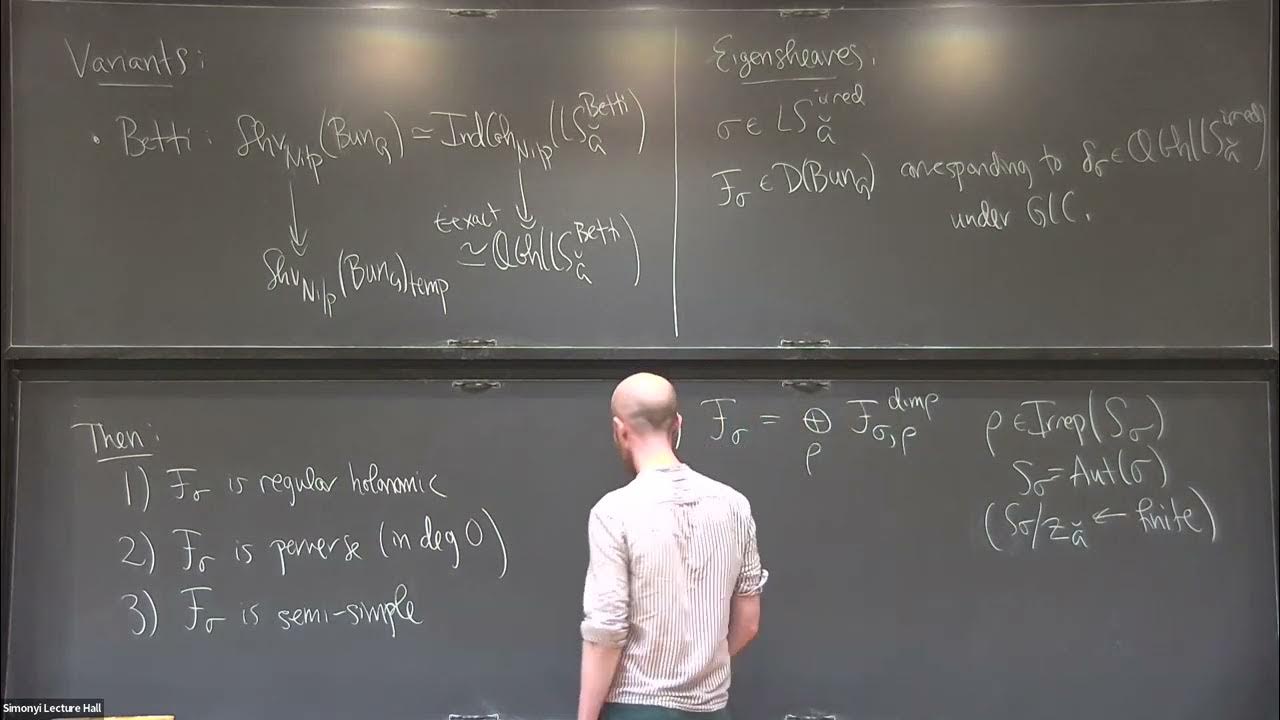 Variants:
• Betti: Shv_Nilp(Bun_G) ≃ IndCoh_Nilp(LS_Ǧ^Betti)
t-exact
Shv_Nilp(Bun_G)_temp ≃ QCoh(LS_Ǧ^Betti)
Eigensheaves:
σ ∈ LS_Ǧ^irred
F_σ ∈ D(Bun_G) corresponding to δ_σ ∈ QCoh(LS_Ǧ^irred)
under GLC.
Then:
1) F_σ is regular holonomic
2) F_σ is perverse (in deg 0)
3) F_σ is semi-simple
) F_σ = ⊕_ρ F_σ,ρ^dim ρ
ρ ∈ Irrep(S_σ)
S_σ = Aut(σ)
(S_σ/Z_Ǧ ← finite)
Simonyi Lecture Hall